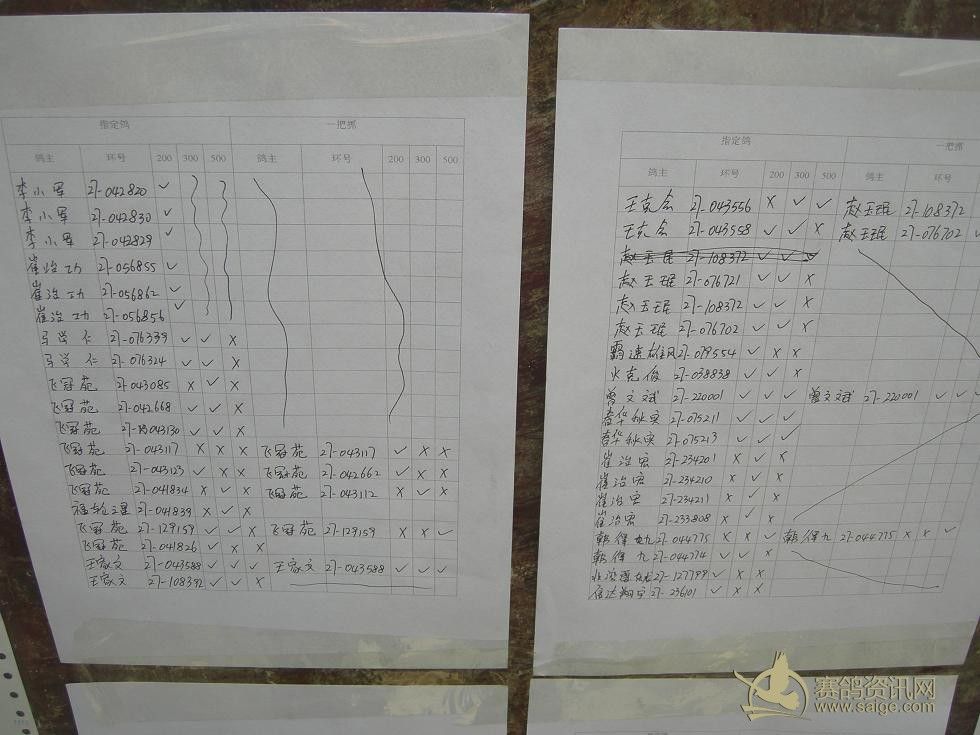 指定鸽 一把抓
鸽主 环号 200 300 500 鸽主 环号 200 300 500
李小军 27-042820 ✓
李小军 27-042830 ✓
李小军 27-042829 ✓
崔治功 27-056855 ✓
崔治功 27-056862 ✓
崔治功 27-056856 ✓
马学仁 27-076339 ✓ ✓ X
马学仁 27-076324 ✓ ✓ X
飞冠苑 27-043085 X ✓ X
飞冠苑 27-042668 ✓ ✓ X
飞冠苑 ✓ ✓ X
飞冠苑 27-043117 X X X 飞冠苑 27-043117 ✓ X X
飞冠苑 27-043123 ✓ X X 飞冠苑 27-042662 ✓ X X
飞冠苑 27-041834 X ✓ X 飞冠苑 27-043112 X ✓ X
27-041839 X ✓ X
飞冠苑 27-129159 ✓ ✓ X 飞冠苑 27-129159 X X ✓
飞冠苑 27-041826 ✓ X X
王家文 27-043588 ✓ ✓ ✓ 王家文 27-043588 ✓ ✓ ✓
王家文 27-108392 ✓ ✓ X
指定鸽 一把抓
鸽主 环号 200 300 500 鸽主 环号
王克念 27-043556 X ✓ ✓ 赵玉琨 27-108372
王克念 27-043558 ✓ ✓ X 赵玉琨 27-076702
赵玉琨 27-108372 ✓ ✓
赵玉琨 27-076721 ✓ ✓ X
赵玉琨 27-108372 ✓ ✓ X
赵玉琨 27-076702 ✓ ✓ X
霸速雄风 27-079554 ✓ X X
火克俊 27-038838 ✓ ✓ X
曾文斌 27-220001 ✓ ✓ ✓ 曾文斌 27-220001 ✓ ✓ ✓
春华秋实 27-075211 ✓ ✓ ✓
春华秋实 27-075213 ✓ ✓ ✓
崔治宏 27-234201 X ✓ X
崔治宏 27-234210 X ✓ X
崔治宏 27-234211 X ✓ X
崔治宏 27-233808 X ✓ X
韩保九 27-044775 X X ✓ 韩保九 27-044775 X X ✓
韩保九 27-044774 ✓ ✓ X
27-127799 ✓ X X
信达翔宇 27-236101 ✓ X X
赛鸽资讯网
www.saige.com